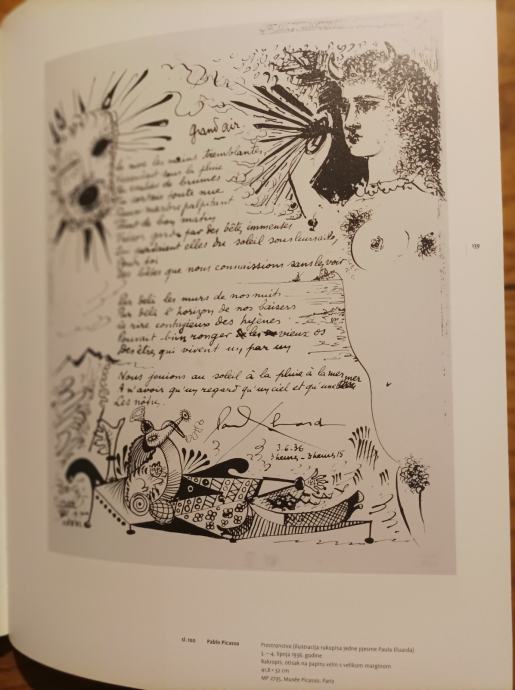 Grand air
La rive les mains tremblantes
Descendait sous la pluie
Un escalier de brumes
Tu sortais toute nue
Faux marbre palpitant
Teint de bon matin
Trésor gardé par des bêtes immenses
Qui gardaient elles du soleil sous leurs ailes
Pour toi
Des bêtes que nous connaissions sans les voir
Par delà les murs de nos nuits
Par delà l'horizon de nos baisers
Le rire contagieux des hyènes
Pouvait bien ronger les vieux os
Des êtres qui vivent un par un
Nous jouions au soleil à la pluie à la mer
A n'avoir qu'un regard qu'un ciel et qu'une mer
Les nôtres.
Paul Eluard
3.6.36
3 heures - 3 heures 15
139
sl. 100 Pablo Picasso
Prostranstva (ilustracija rukopisa jedne pjesme Paula Éluarda)
3. – 4. lipnja 1936. godine
Bakropis, otisak na papiru velin s velikom marginom
41,8 × 32 cm
MP 2735, Musée Picasso, Paris